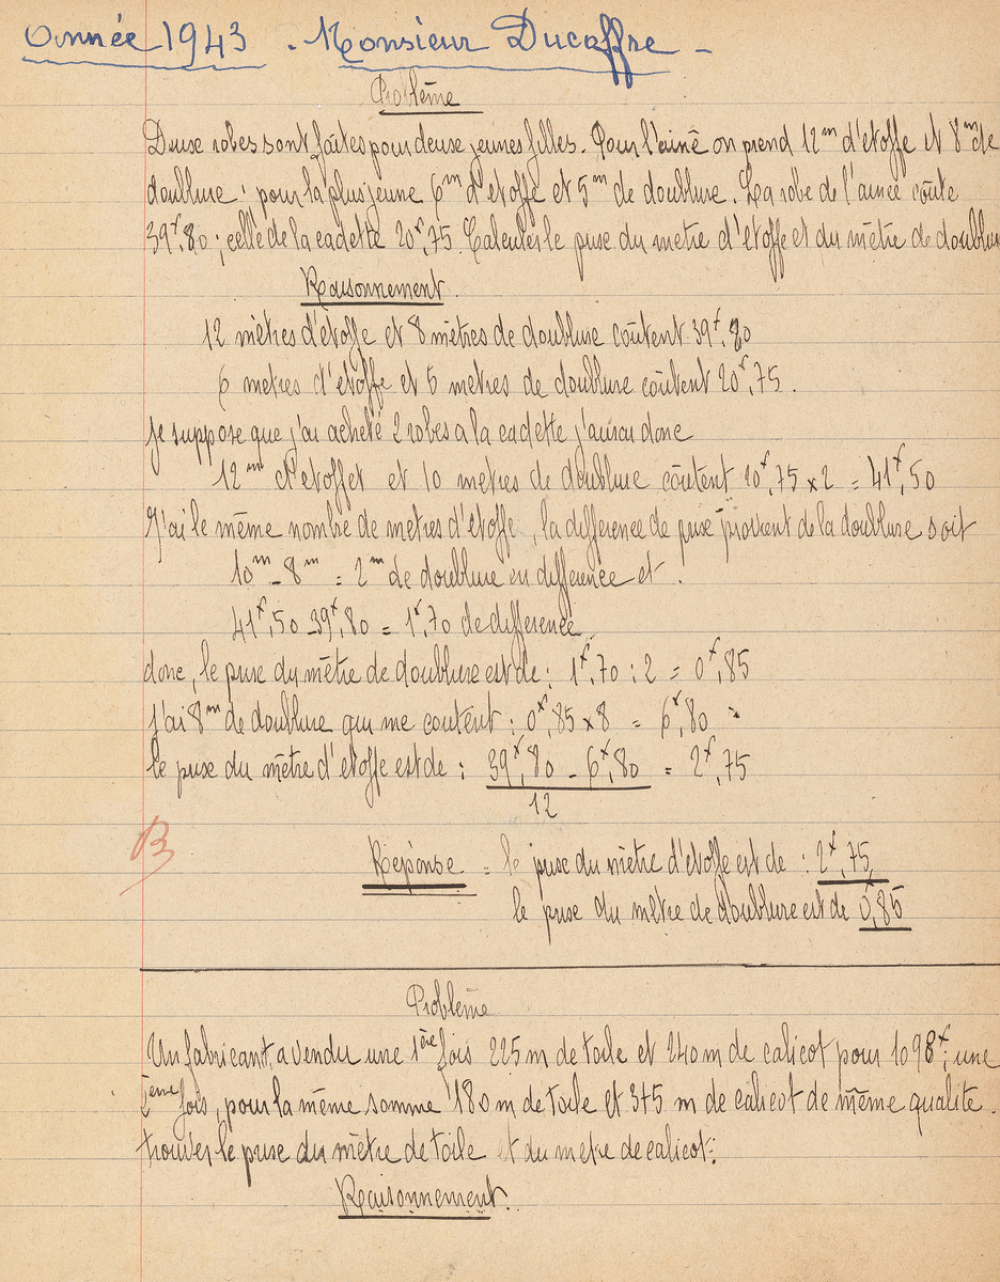 Année 1943 - Monsieur Ducaffre -
Problème
Deux robes sont faites pour deux jeunes filles. Pour l'ainé on prend 12m d'étoffe et 8m de
doublure ; pour la plus jeune 6m d'étoffe et 5m de doublure. La robe de l'ainée coûte
39f,80 ; celle de la cadette 20f,75. Calculer le prix du metre d'étoffe et du mètre de doublure
Raisonnement.
12 mètres d'étoffe et 8 mètres de doublure coûtent 39f,80
6 metres d'étoffe et 5 metres de doublure coûtent 20f,75.
Je suppose que j'ai acheté 2 robes a la cadette j'aurai donc
12m d'étoffes et 10 metres de doublure coûtent 20f,75 x 2 = 41f,50
J'ai le même nombre de metres d'étoffe, la difference de prix provient de la doublure soit
10m - 8m = 2m de doublure en difference et :
41f,50 - 39f,80 = 1f,70 de difference.
donc, le prix du mètre de doublure est de : 1f,70 : 2 = 0f,85
J'ai 8m de doublure qui me coutent : 0f,85 x 8 = 6f,80
le prix du mètre d'étoffe est de : 39f,80 - 6f,80 = 2f,75
12
B
Reponse = le prix du mètre d'étoffe est de : 2f,75
le prix du mètre de doublure est de 0,85
Problème
Un fabricant a vendu une 1ère fois 225 m de toile et 240 m de calicot pour 1098f; une
2ème fois, pour la même somme 180 m de toile et 375 m de calicot de même qualité.
trouver le prix du mètre de toile et du metre de calicot :
Raisonnement.